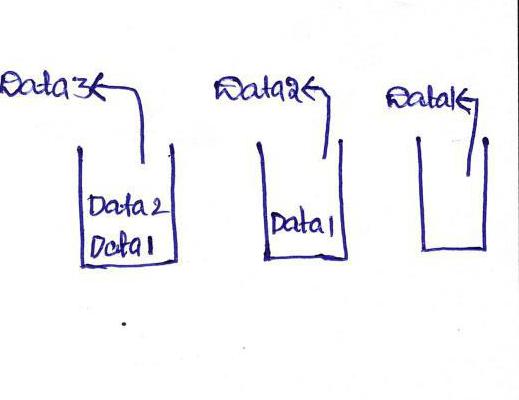 Data3
Data2
Data1
Data2
Data1
Data1